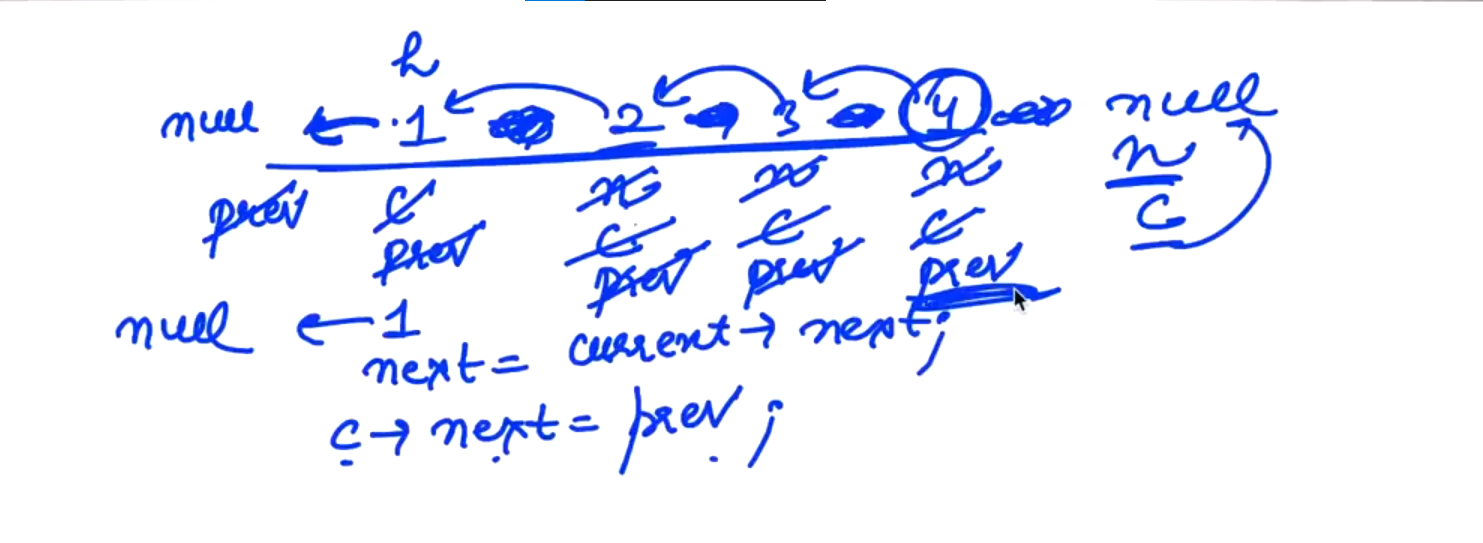 h
null ← 1 2 3 4 null
prev c n n n n
prev c c c c
prev prev prev
null ← 1
next = current → next;
c → next = prev;